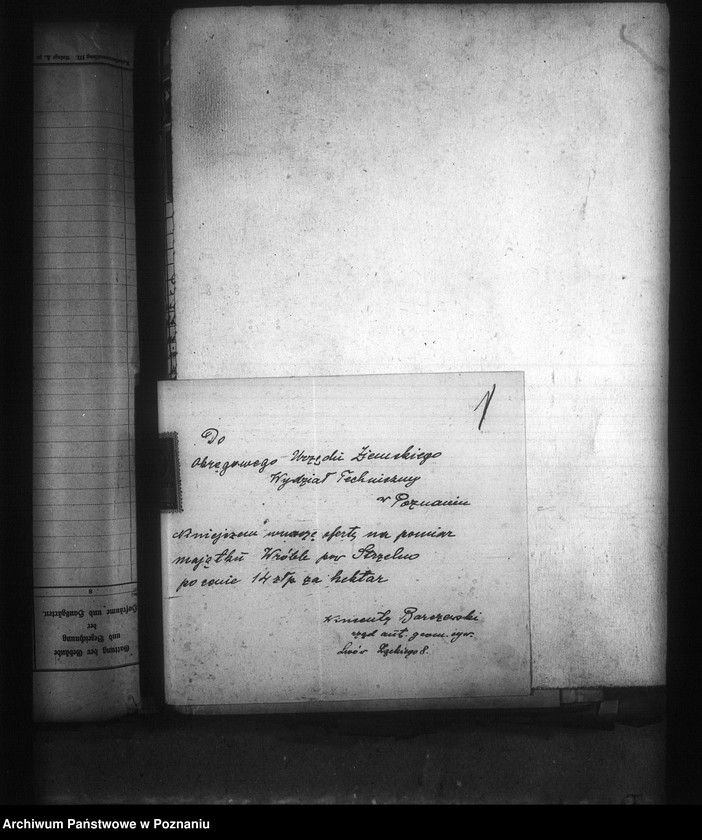 1
Do
Okręgowego Urzędu Ziemskiego
Wydział Techniczny
w Poznaniu
Niniejszem wnoszę ofertę na pomiar
majątku Wróble pow Strzelno
po cenie 14 złp za hektar
Barszewski
rząd aut. geom. cyw.
Lwów 8.
Gattung der Gebäude
und Bezeichnung
der
Hofräume und Hausgärten.
8
Archiwum Państwowe w Poznaniu